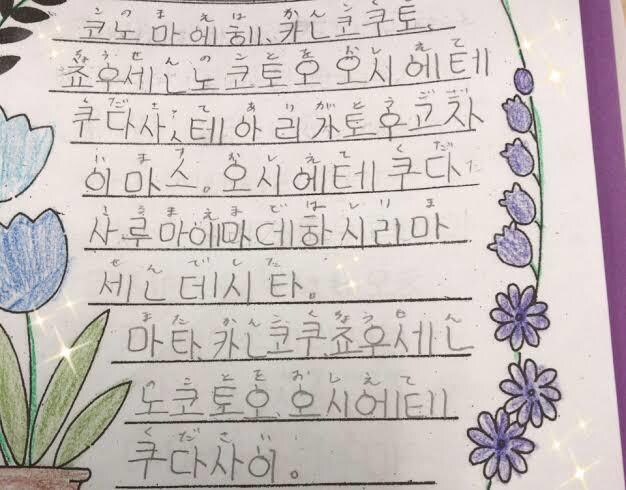 こ の ま え は か ん こ く と
코노 마에헤、카ㄴ코쿠토、
ょ う せ ん の こ と を お し え て
죠우세ㄴ노코토오 오시에테
く だ さ っ て あ り が と う ご ざ
쿠다사ㅅ테아리가토우고자
い ま す お し え て く だ
이마스。오시에테쿠다
さ る ま え ま で は し り ま
사루마에마데하시리마
せ ん で し た
세ㄴ데시타。
ま た か ん こ く ょ う せ ん
마타、카ㄴ코쿠죠우세ㄴ
の こ と を お し え て
노코토오 오시에테
く だ さ い
쿠다사이。